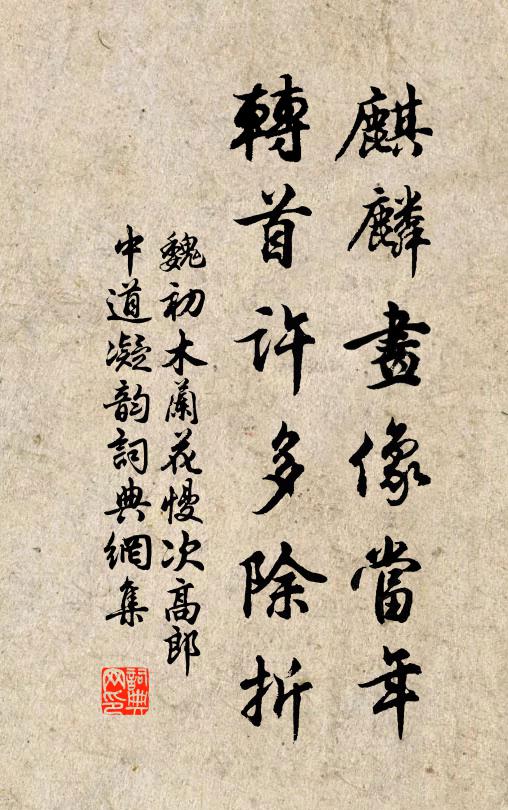 麒麟畫像當年
轉首許多除折
魏初木蘭花慢次高郎
中道凝韵詞典網集
詞典網印